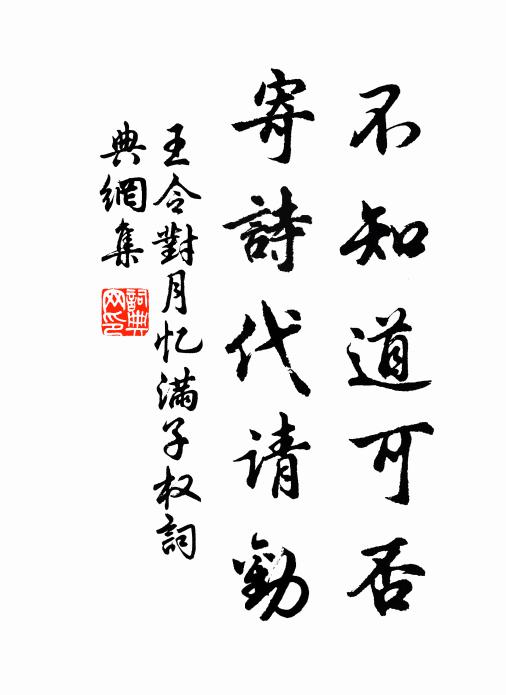 不知道可否
寄詩代请勸
王令對月忆滿子权詞
典網集
詞典网印